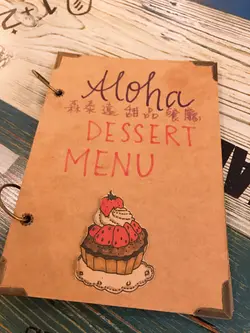 Aloha
森泰逸甜品餐廳
DESSERT
MENU